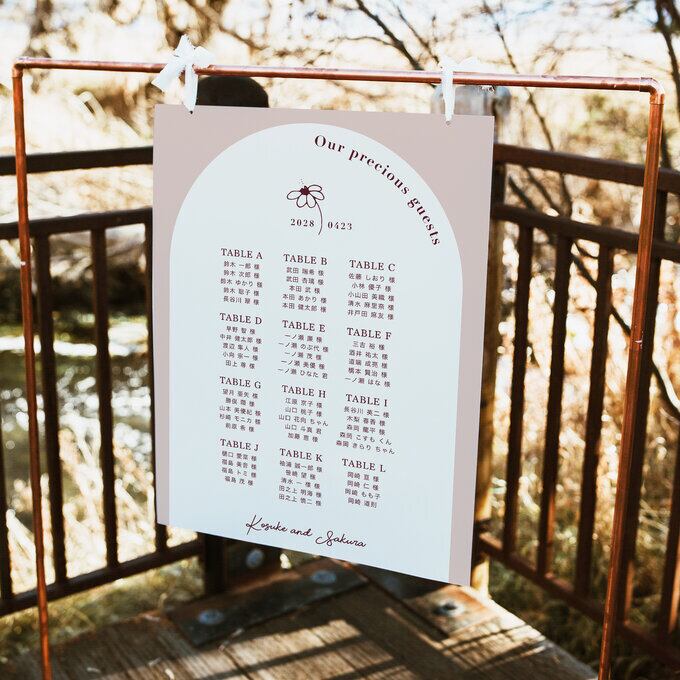 Our precious guests
2028 0423
TABLE A
鈴木 一郎 様
鈴木 次郎 様
鈴木 ゆかり 様
鈴木 聡子 様
長谷川 犀 様
TABLE B
武田 瑞希 様
武田 杏璃 様
本田 武 様
本田 あかり 様
本田 健太郎 様
TABLE C
佐藤 しおり 様
小林 優子 様
小山田 美織 様
清水 麻里奈 様
井戸田 麻友 様
TABLE D
早野 智 様
中井 健太郎 様
渡辺 隼人 様
小向 宗一 様
田上 尊 様
TABLE E
一ノ瀬 廉 様
一ノ瀬 のぶ代 様
一ノ瀬 茂 様
一ノ瀬 美優 様
一ノ瀬 ひなた 君
TABLE F
三吉 裕 様
酒井 祐太 様
道端 成亮 様
橋本 賢治 様
一ノ瀬 はな 様
TABLE G
望月 亜矢 様
勝俣 翔 様
山本 美優紀 様
杉崎 モニカ 様
前原 希 様
TABLE H
江原 京子 様
山口 桃子 様
山口 花向 ちゃん
山口 斗真 君
加藤 恵 様
TABLE I
長谷川 英二 様
木梨 春香 様
森岡 龍平 様
森岡 こすも くん
森岡 きらり ちゃん
TABLE J
樋口 愛菜 様
福島 美音 様
福島 トミ 様
福島 茂 様
TABLE K
袖浦 誠一郎 様
笹崎 望 様
清水 一 様
田之上 明海 様
田之上 慎二 様
TABLE L
岡崎 亘 様
岡崎 仁 様
岡崎 もも子 様
岡崎 道則
Kosuke and Sakura